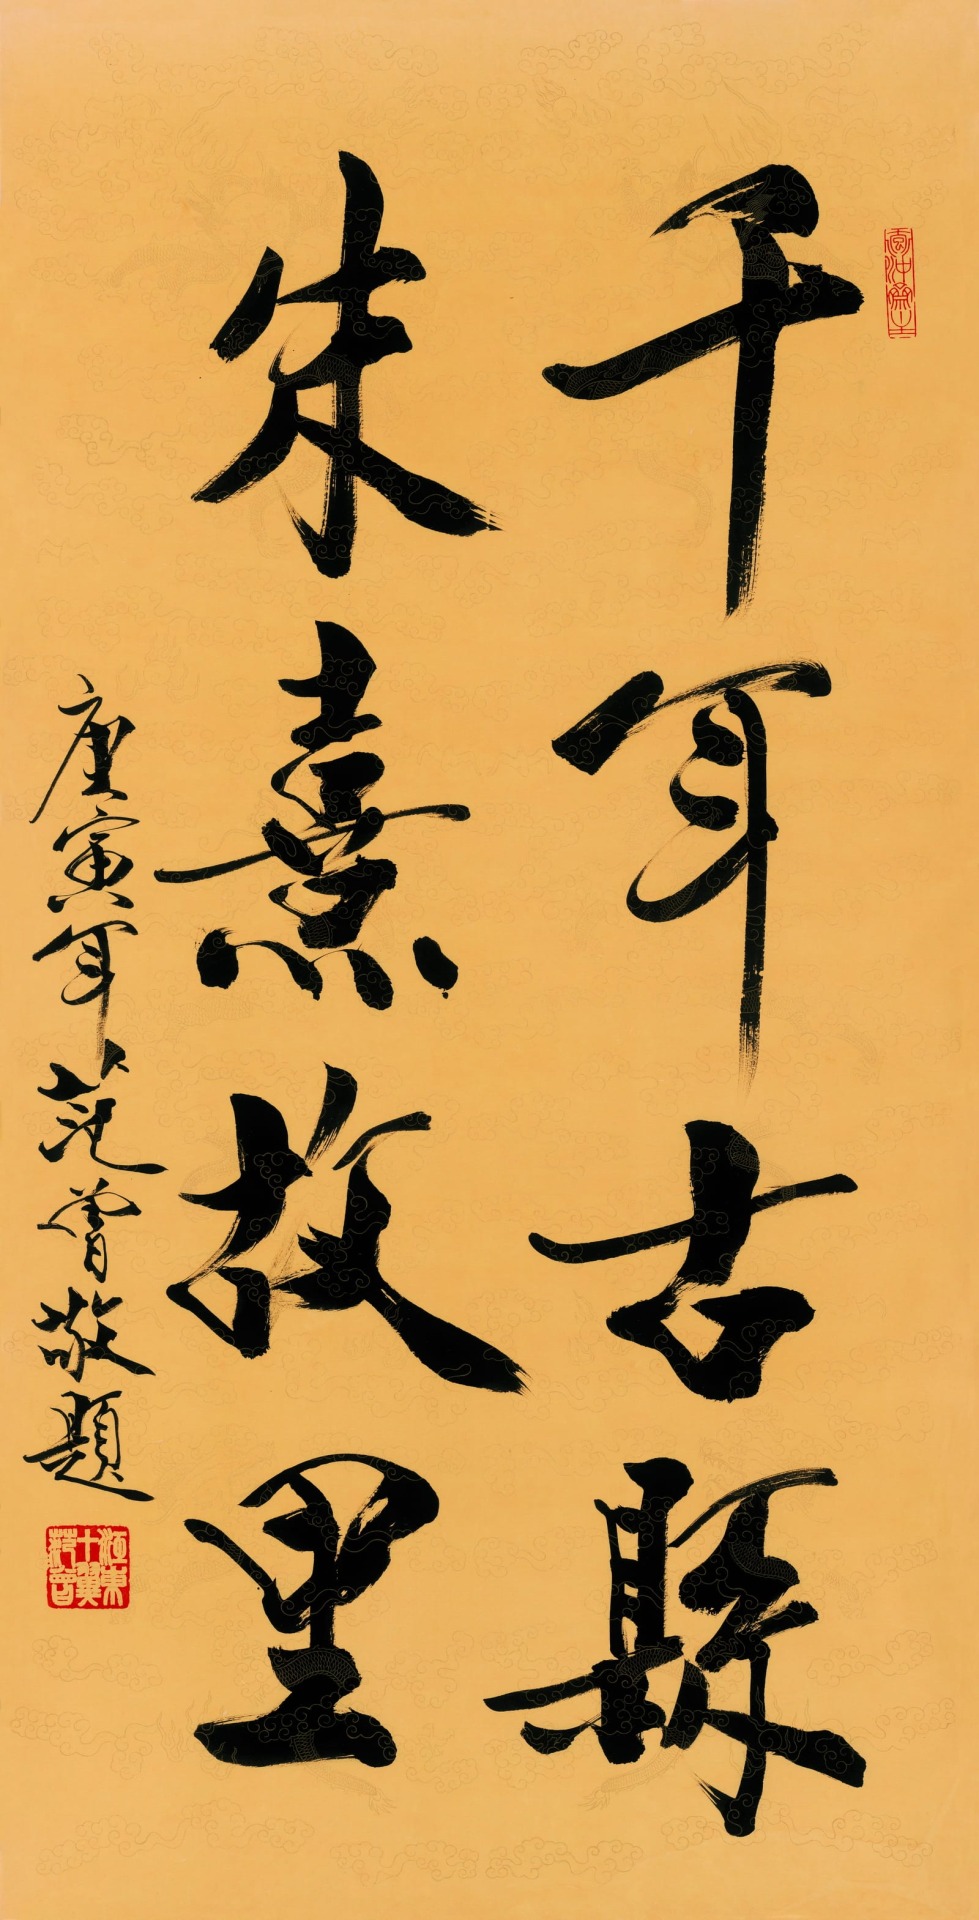 千年古縣
朱熹故里
庚寅年范曾敬題
江東十翼范曾